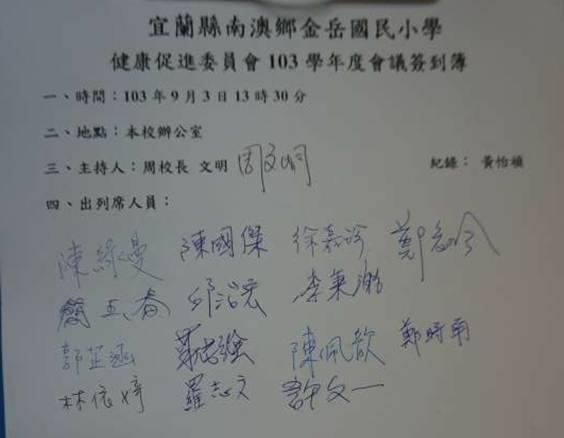 宜蘭縣南澳鄉金岳國民小學
健康促進委員會 103 學年度會議簽到簿
一、時間：103 年 9 月 3 日 13 時 30 分
二、地點：本校辦公室
三、主持人：周校長 文明 周文明 紀錄： 黃怡禎
四、出列席人員：
陳綠曼 陳國傑 徐嘉玲
邱治宏 李秉
陳佩歆 鄭時雨
林依婷 羅志文 許文一